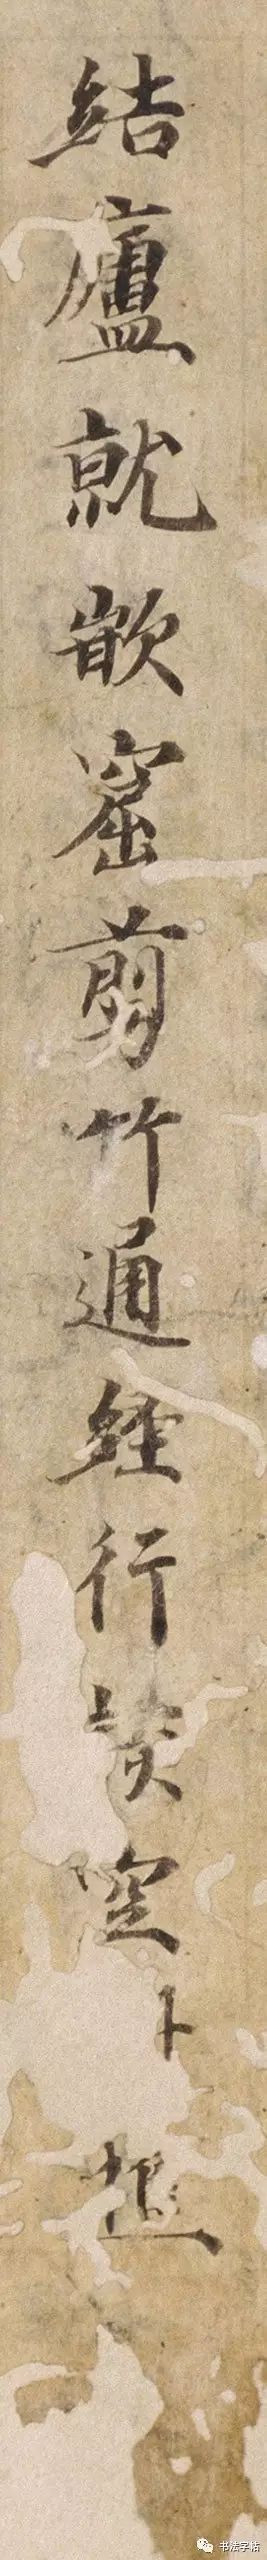 結廬就嵌窟剪竹通経行空卜
书法字帖